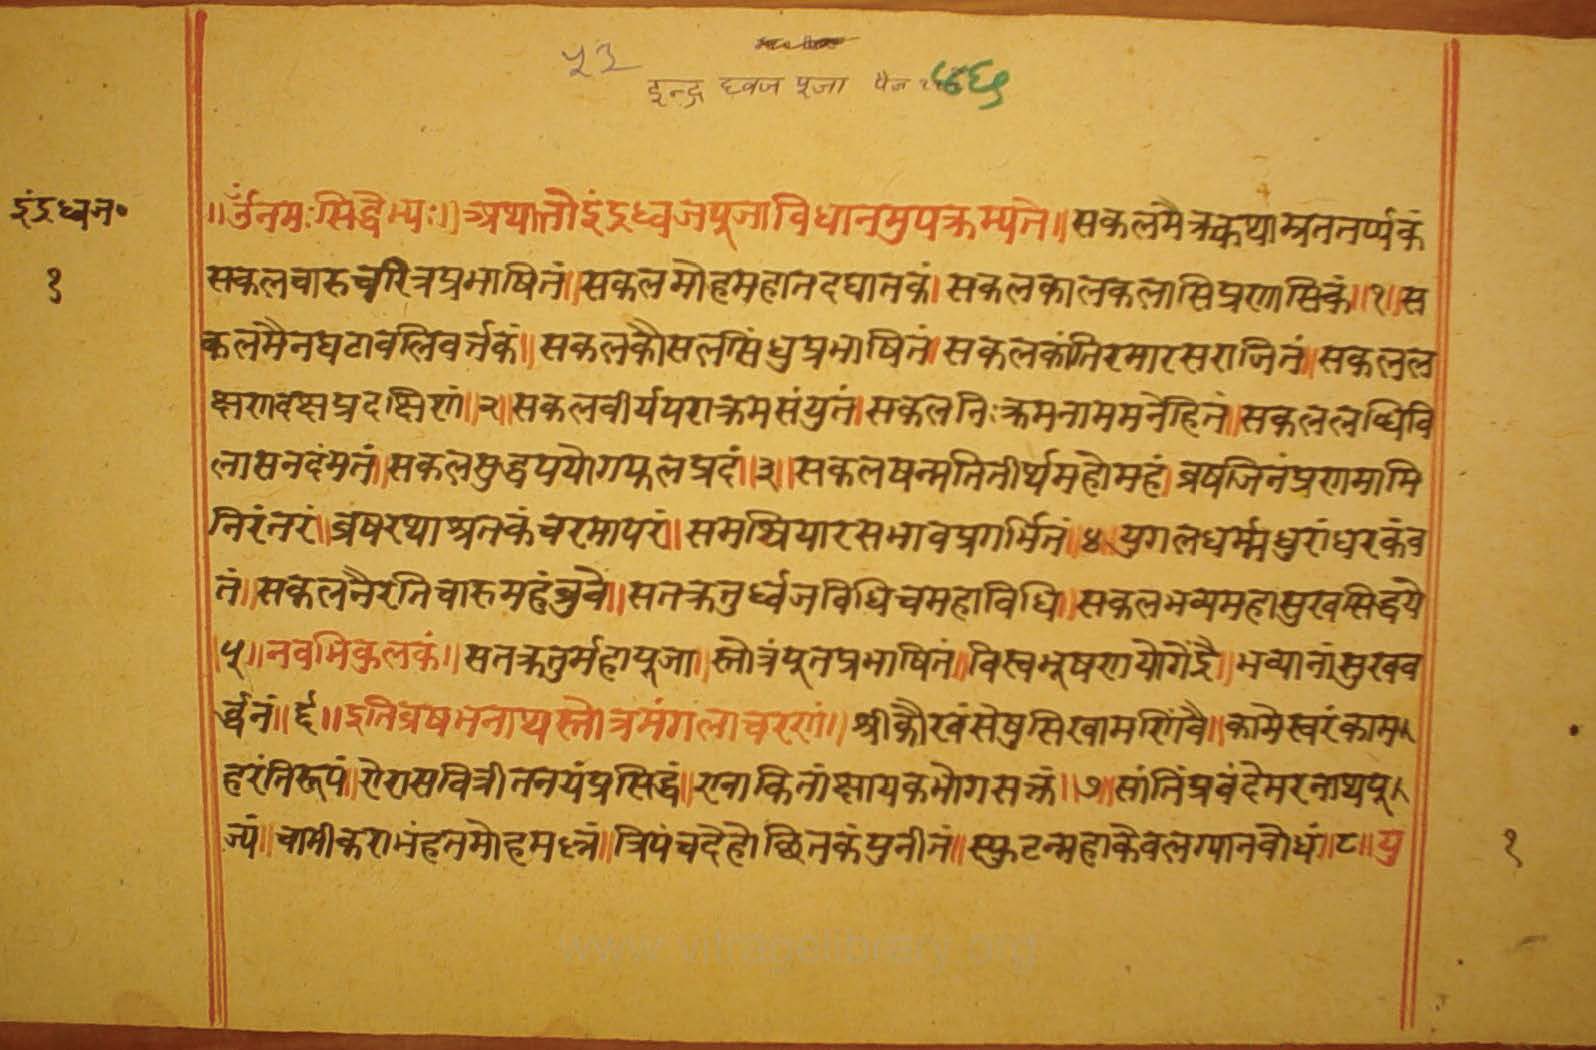 ५३
इन्द्र ध्वज पूजा पेज
५६
इंद्रध्वज॰
१
॥ॐनमःसिद्धेभ्यः॥अथातोइंद्रध्वजपूजाविधानमुपक्रम्यते॥सकलमैत्रकथाम्रततर्प्पकं
सकलचारुचरित्रप्रभाषितं॥सकलमोहमहातदघातकं।सकलकालकलासिप्रणासिकं॥१॥स
कलमैनघटावलिवर्त्तकं॥सकलकौसलसिंधुप्रभाषितं॥सकलकांतिरमारसराजितं॥सकलल
क्षणदक्षप्रदक्षिणं॥२॥सकलवीर्यपराक्रमसंयुतं।सकलनिःक्रमनाममनेहितं॥सकललब्धिवि
लासनदंमतं॥सकलसुद्धपयोगफलप्रदं॥३॥सकलषन्मतितीर्थमहोमहं।व्रषजिनंप्रणमामि
निरंतरं॥व्रषरथाश्रतकंचरमापरं॥समश्चियारसभावप्रगर्मितं॥४॥युगलधर्म्मधुरांधरकंव
तं॥सकलनैरतिचारुमहंब्रुवे॥सतक्रतुर्ध्वजविधिचमहाविधि॥सकलभव्यमहासुखसिद्धये
५॥नवभिकुलकं॥सतक्रतुर्महापूजा॥स्तोत्रंपूतप्रभाषितं॥विस्वभूषणयोगेंद्रै॥भव्यानांसुखव
र्द्धनं॥६॥इतिव्रषभनाथस्तोत्रमंगलाचरणं॥श्रीकौरवंसेषुसिखामणिंवै॥कामेस्वरंकाम
हरंतिरूपं॥ऐरासवित्रीतनयंप्रसिद्धं॥रत्नाकितांक्षायकभोगसक्तं॥७॥सांतिंप्रवंदेमरनाथपू
ज्यं॥चामीकराभंहतमोहमल्लं॥त्रिपंचदेहोच्छितकंपुनीतं॥स्फुटन्महाकेवलग्यानबोधं॥८॥यु
१
www.vitragelibrary.org